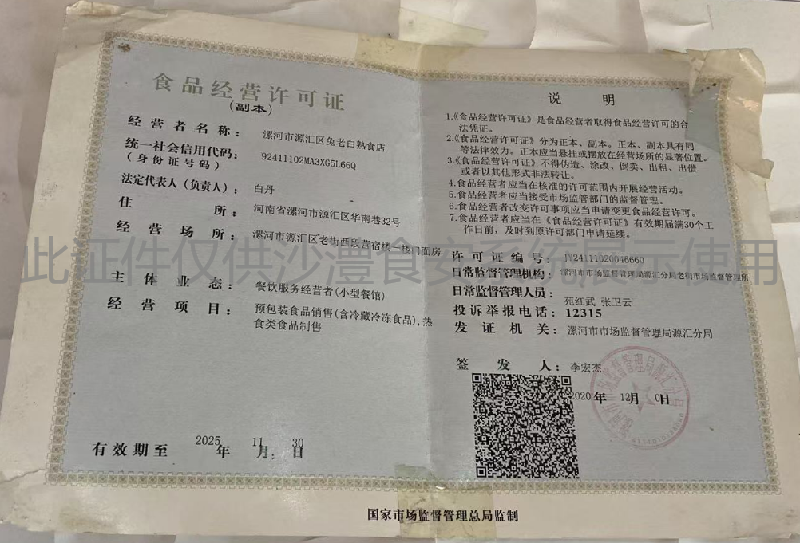 食品经营许可证
(副本)
经营者名称： 漯河市源汇区兔老白熟食店
统一社会信用代码： 92411102MA3XG5L66Q
(身份证号码)
法定代表人（负责人）： 白丹
住所： 河南省漯河市源汇区华南巷32号
经营场所： 漯河市源汇区老街西段营宿楼一楼门面房
主体业态： 餐饮服务经营者(小型餐馆)
经营项目： 预包装食品销售(含冷藏冷冻食品),热
食类食品制售
有效期至 2025 年 11 月 30 日
说明
1.《食品经营许可证》是食品经营者取得食品经营许可的合
法凭证。
2.《食品经营许可证》分为正本、副本。正本、副本具有同
等法律效力。正本应当悬挂或摆放在经营场所的显著位置。
3.《食品经营许可证》不得伪造、涂改、倒卖、出租、出借
或者以其他形式非法转让。
4.食品经营者应当在核准的许可范围内开展经营活动。
5.食品经营者应当接受市场监管部门的监督管理。
6.食品经营者改变许可事项应当申请变更食品经营许可。
7.食品经营者应当在《食品经营许可证》有效期届满30个工
作日前，及时到原许可部门申请延续。
许可证编号：
日常监督管理机构： 漯河市市场监督管理局源汇分局老街市场监督管理所
日常监督管理人员： 苑红武 张卫云
投诉举报电话： 12315
发证机关： 漯河市市场监督管理局源汇分局
签发人： 李宏杰
2020 年 12月 日
国家市场监督管理总局监制
此证件仅供沙澧食安系统展示使用